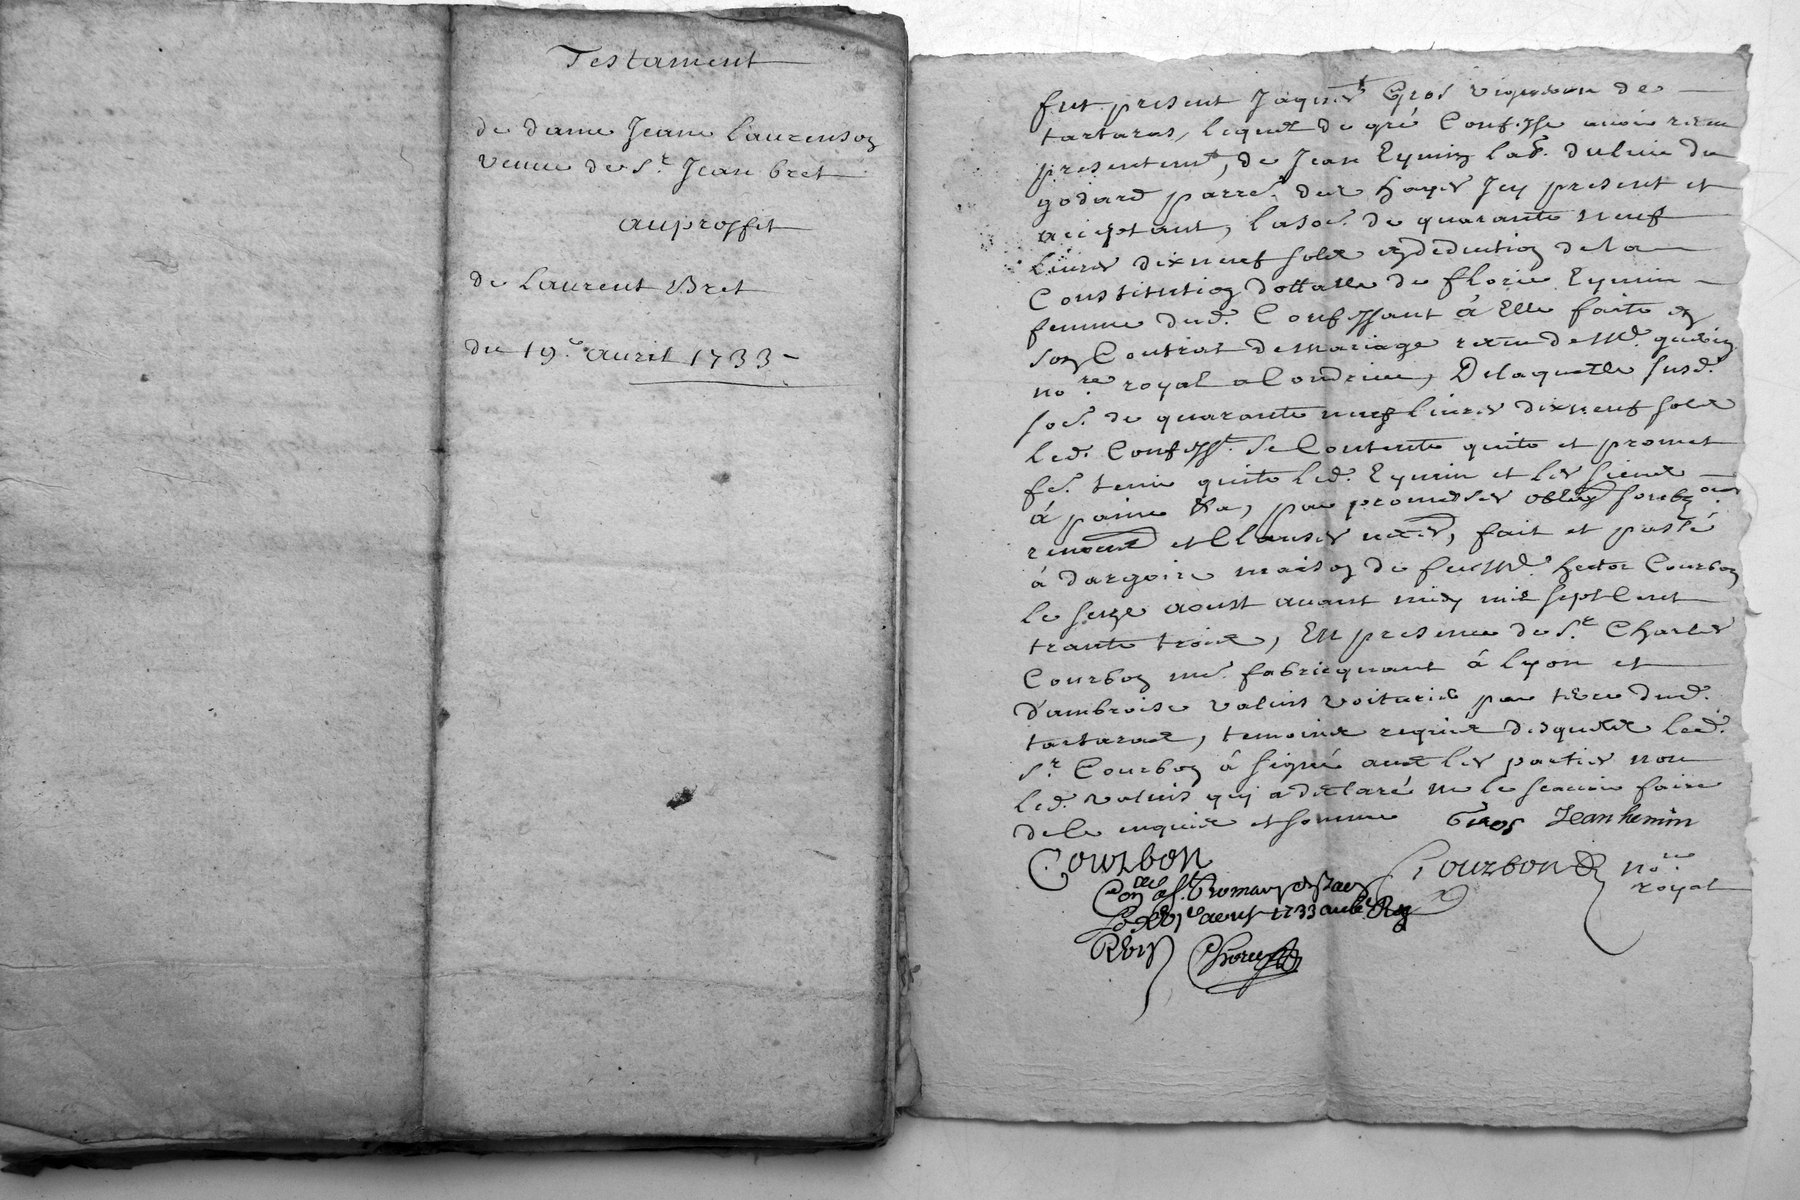 Testament
de dame Jeane Laurenson
veuve de Sr. Jean bret
au proffit
de Laurent Bret
du 19e. avril 1733
fut present Jaques Gros vigneron de
tartaras, lequel de gré Confesse avoir receu
presentemt, de Jean Eymin lab. du lieu du
godard parre. des hayes Jcy present et
acceptant, la soe. de quarante neuf
livres dixneuf sols en deduction de la
Constitution dottalle de florie Eymin
femme dud. Confessant à Elle faite en
son Contrat de mariage receu de Me.
nore. royal a Condrieu, De laquelle susd.
soe. de quarante neuf livres dixneuf sols
led. Confesst. Se Contente quite et promet
fe. tenir quite led. Eymin et les siens
à peine &a, par promesses oblig
renonc et Clauses necres, fait et passé
à dargoire maison de feu Me. hector Courbon
le seize aoust avant midy mil sept Cent
trante trois, En presence de Sr. Charles
Courbon me. fabricquant à lyon et
d'ambroise valuis voiturier par terre dud.
tartaras, temoins requis desquels led.
Sr. Courbon à signé avec les parties non
led. valuis qui a declaré ne le scavoir faire
de le enquis et somme Gros Jean hemin
Courbon Courbon nore
royal
Conlle à St. Romain
Le aoust 1733